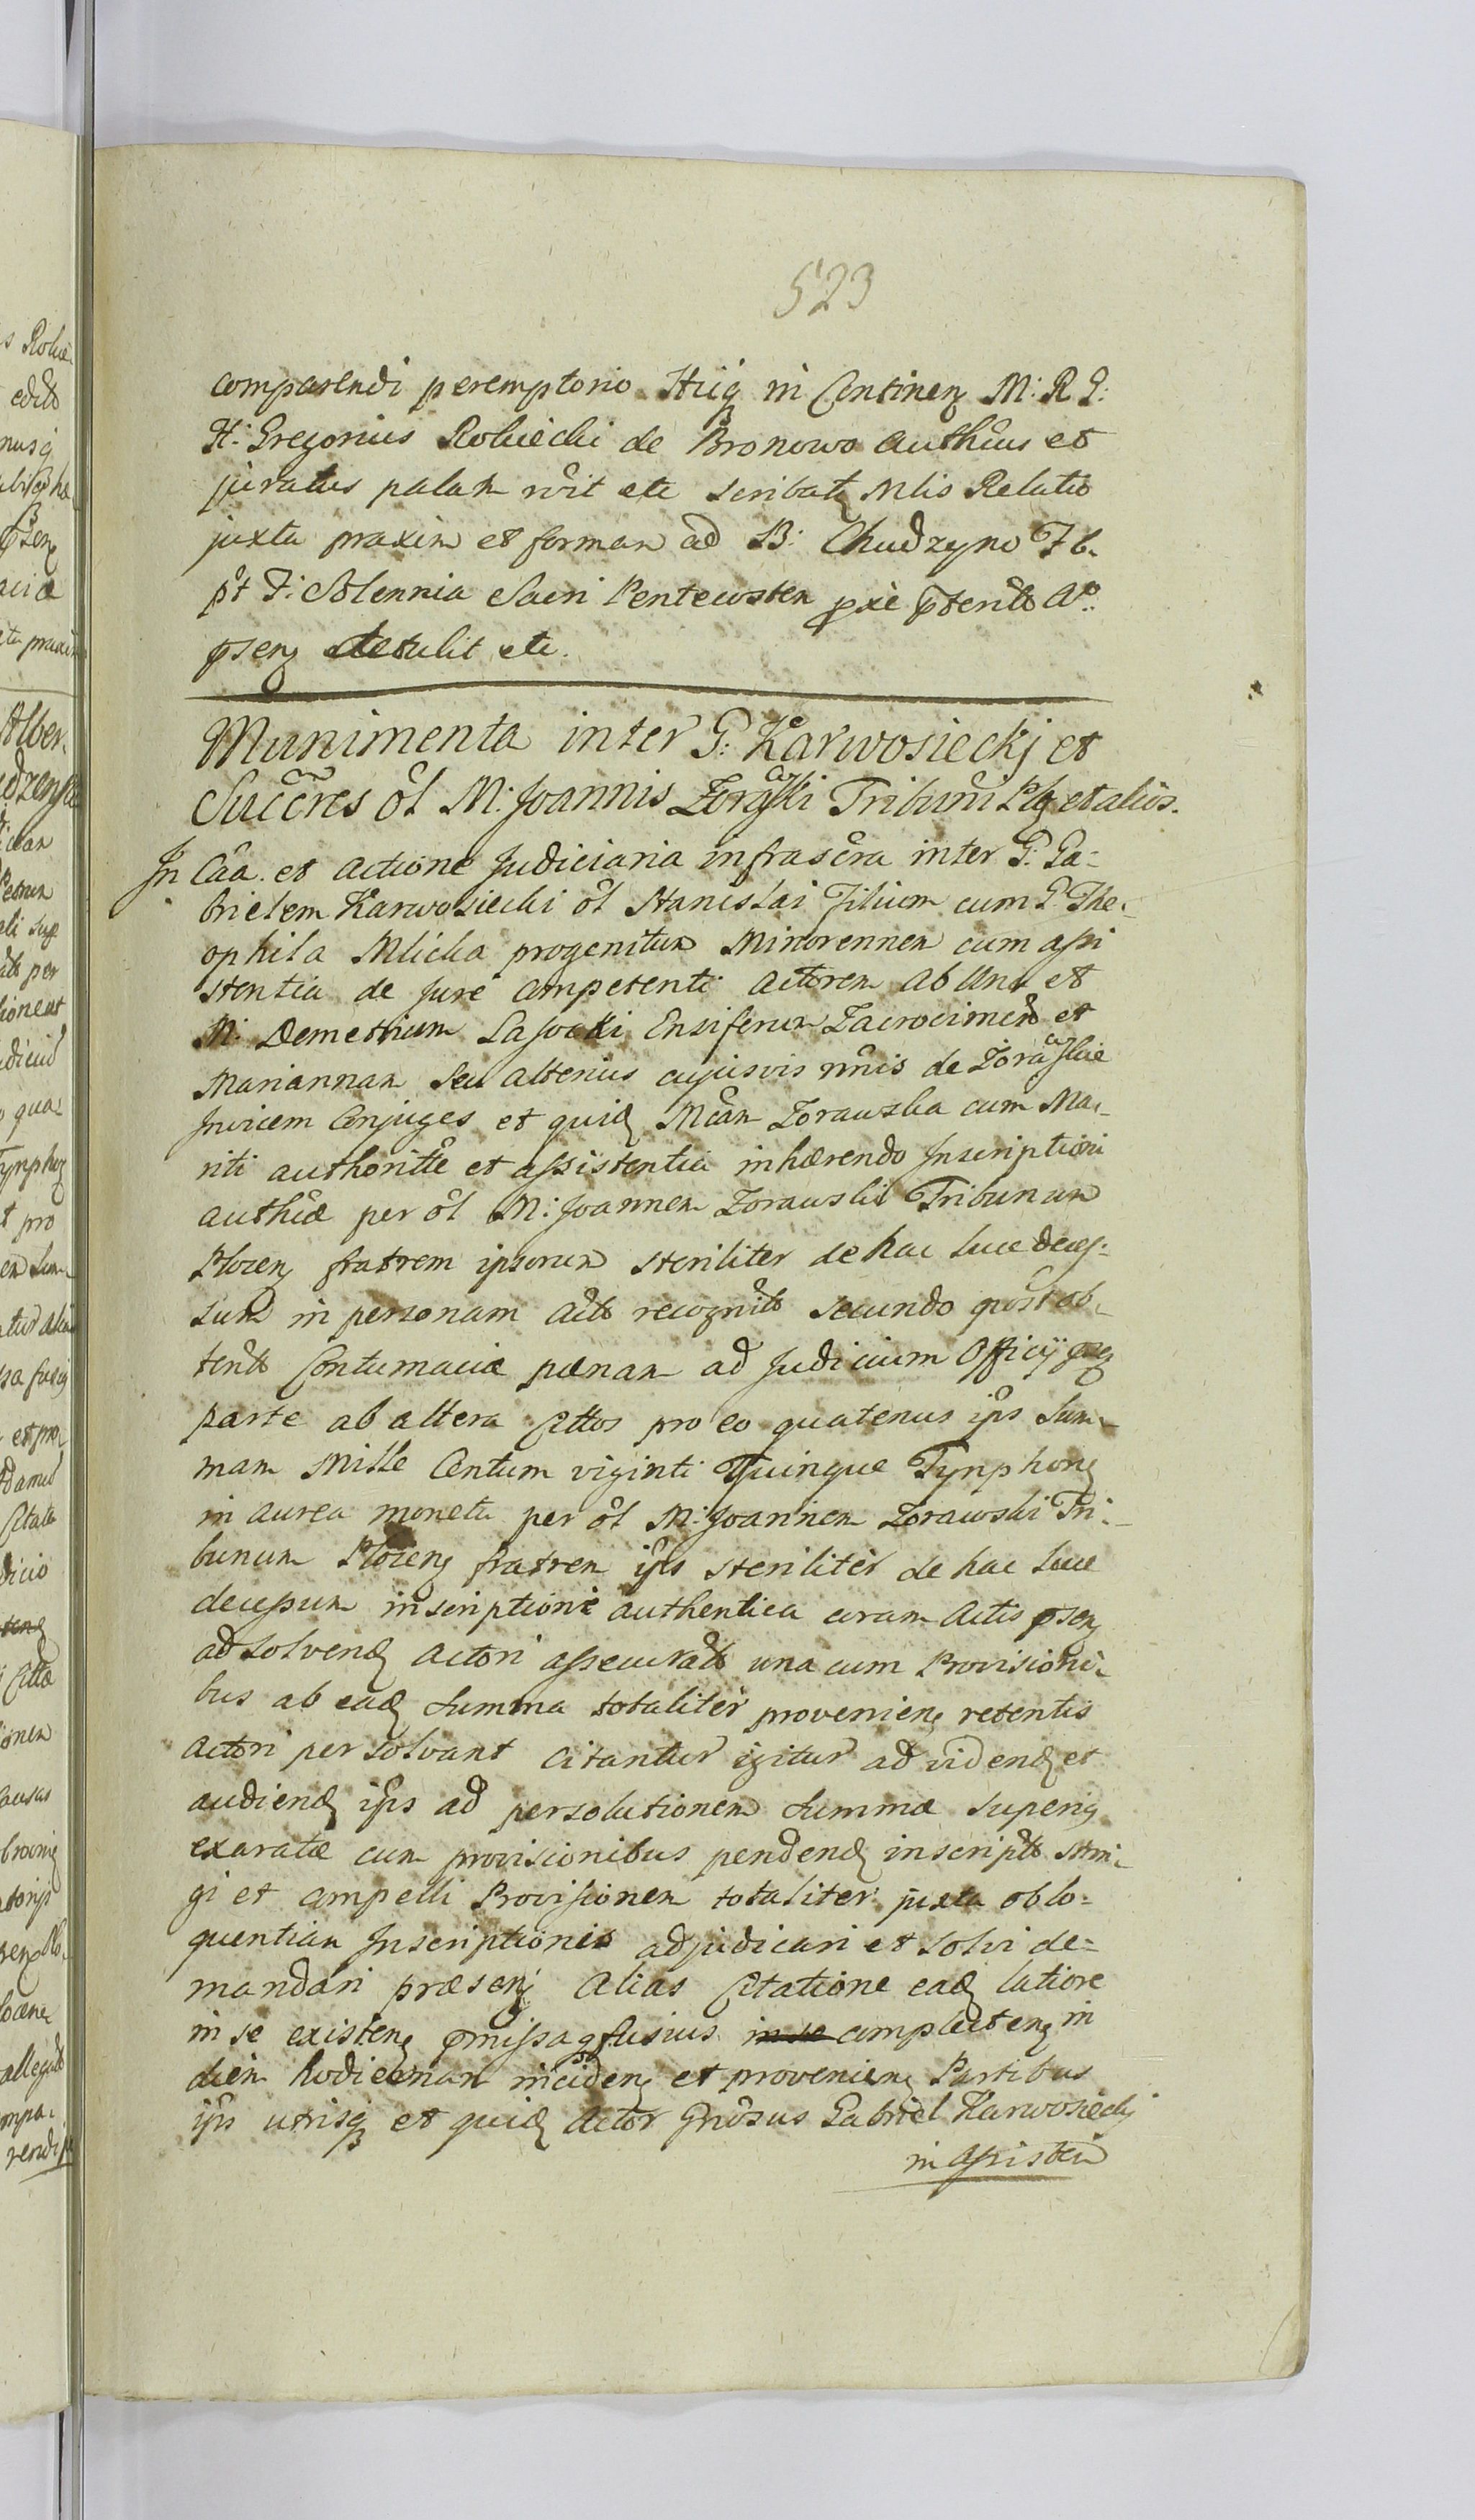 523
comparendi peremptorio Huiq in Continen M: R G:
H: Gregorius Robiecki de Bronowo authus et
juratus palam rvit etc scribatq Mlis Relatio
juxta praxim et formam ad B: Chudzyno F 6.
pt F: Solennia Sacri Pentecosten pxe pterit Ao
psen detulit etc.
Munimenta inter G: Karwosieckj et
Succres ol M: Joannis Zorawski Tribuni Plg et alios.
In Caa. et actione Judiciaria infrascra inter G. Ga-
brielem Karwosiecki ol Stanislai Filium cum G. The-
ophila Mlicka progenitum Minorennem cum assi
stentia de jure competenti actorem ab una et
M: Demetrium Lasocki Ensiferum Zacrocimen et
Mariannam seu alterius cujusvis nnis de Zorawskie
Invicem Conjuges et quid Mcam Zorawska cum Ma-
riti authoritte et assistentia inhærendo Inscriptioni
authcæ per ol M: Joannem Zorawski Tribunum
Plocen fratrem ipsorum steriliter de hac luce deces-
sum in personam actis recognit secundo post ob-
tent Contumaciæ pænam ad Judicium Officij
parte ab altera Cittos pro eo quatenus ips Sum-
mam Mille Centum viginti Quinque Tynphong
in aurea moneta per ol M: Joannem Zorawski Tri-
bunum Plocen fratrem ips steriliter de hac luce
decessum inscriptione authentica coram Actis psen
ad solvend actori assecurat una cum Provisioni-
bus ab ead Summa totaliter provenien retentis
actori persolvant citantur igitur ad vidend et
audiend ips ad persolutionem Summæ superiq
exaratæ cum provisionibus pendend inscript stri-
gi et compelli Provisionem totaliter juxta oblo-
quentiam Inscriptionis adjudicari et solvi de-
mandari præsen Alias Citatione ead latiore
in se existen pmissaq fusius in se complecten in
diem hodiernam inciden et provenien Partibus
ips utrisq et quid actor Gnosus Gabriel Karwosieckj
in assisten